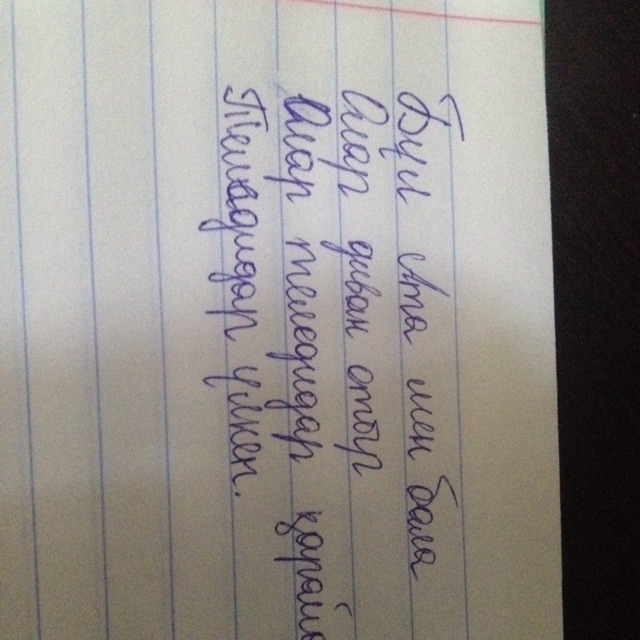 Бұл ата мен бала
Олар диван отыр
Олар теледидар қарайд
Теледидар үлкен.